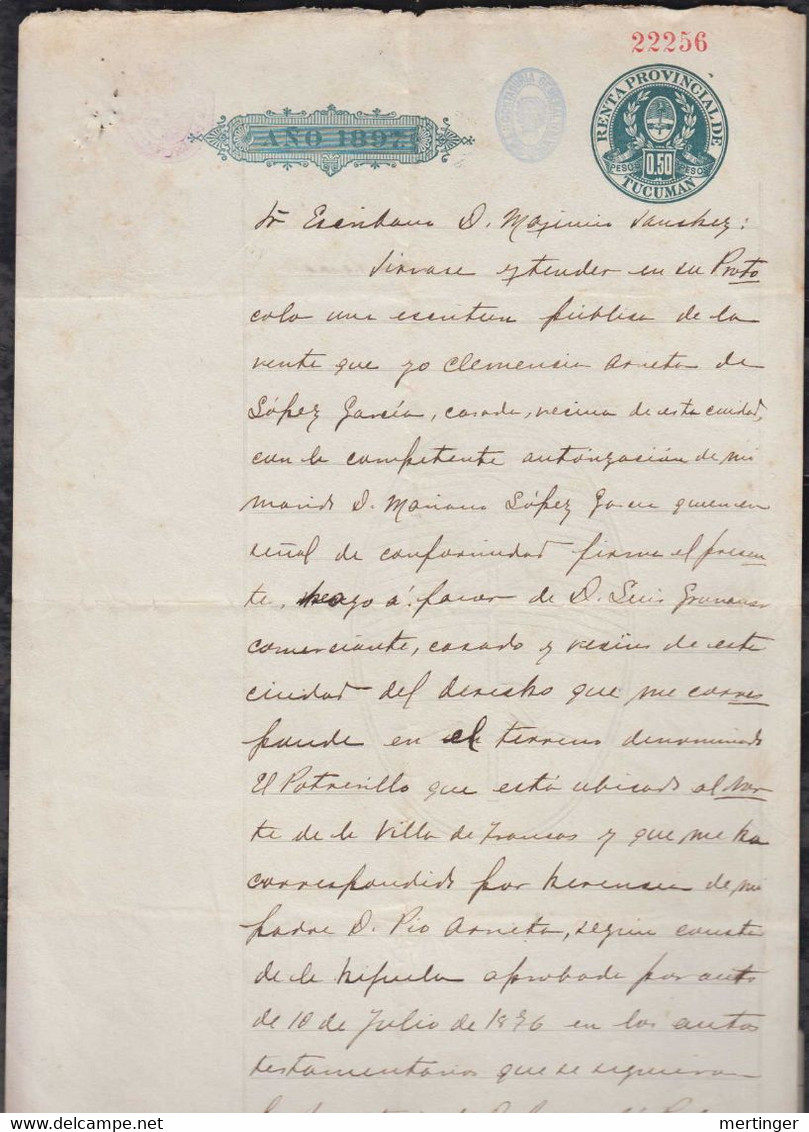 22256
RENTA PROVINCIAL DE
PESO 0.50 PESO
TUCUMAN
AÑO 1897
Sr Escribano D. Maximio Sanchez:
Sirvase extender en su Proto
colo una escritura pública de la
venta que yo Clemensia Arrieta de
López García, casada, vecina de esta ciudad,
con la competente autorización de mi
marido D. Mariano López Garcia quien en
señal de conformidad firma el presen
te, hago á favor de D. Luis
comerciante, casado y vecino de esta
ciudad del derecho que me corres
ponde en el terreno denominado
El Potrerillo que está ubicado al Nor
te de la Villa de Trancas y que me ha
correspondido por herencia de mi
padre D. Pio Arrieta, según consta
de la hijuela aprobada por auto
de 10 de Julio de 1896 en los autos
testamentarios que se siguieron
mertinger